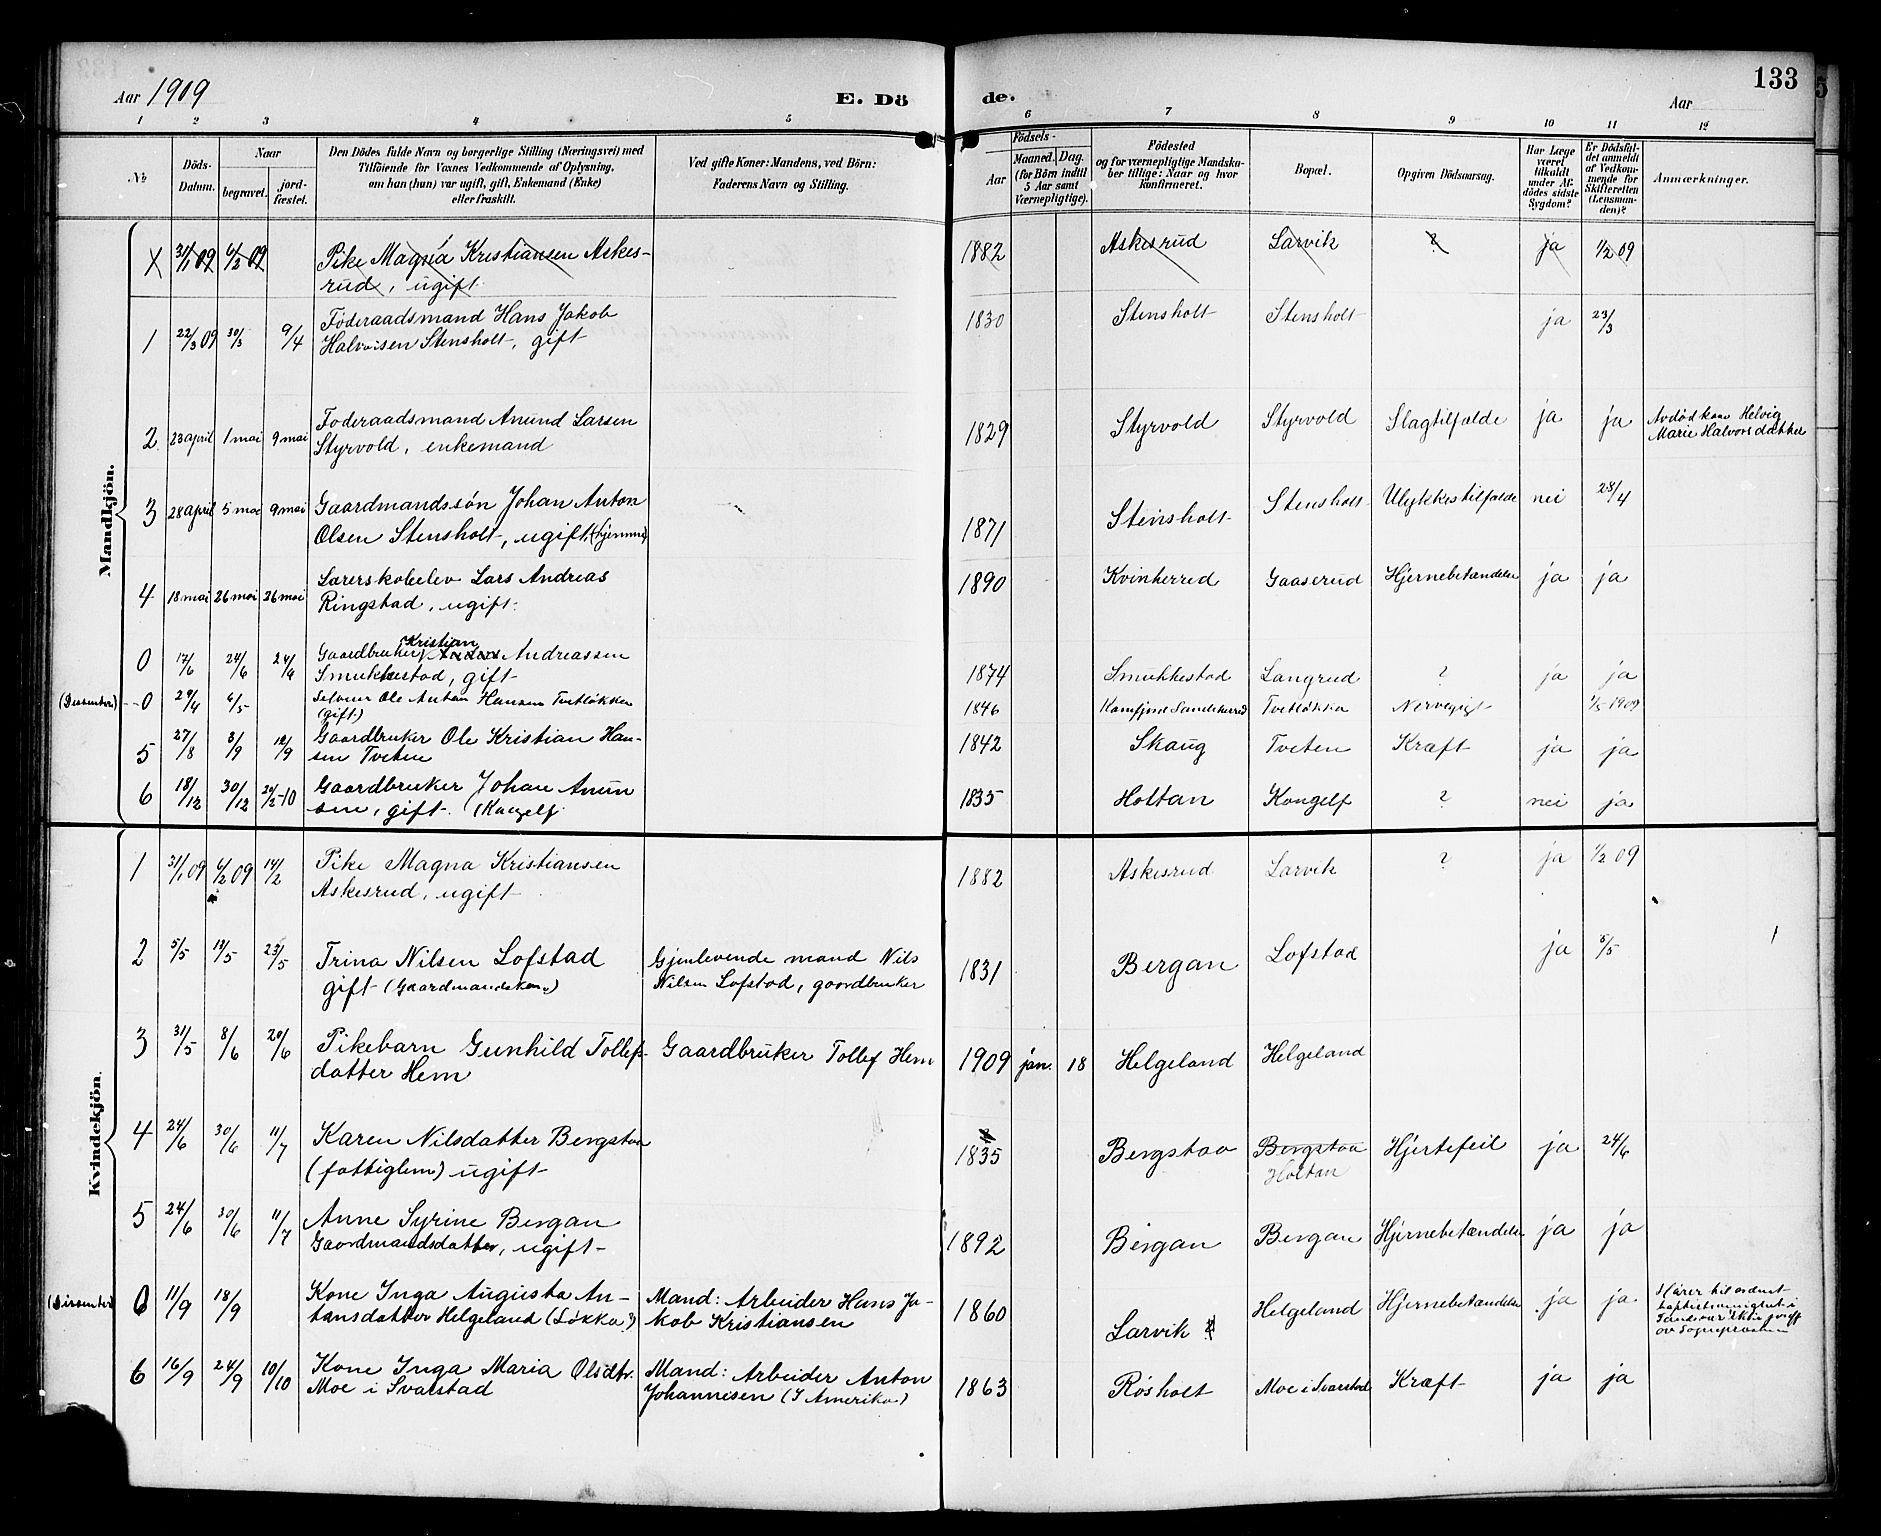 Aar 1909
E. Dö
de.
133
Aar
1 2 3 4 5 6 7 8 9 10 11 12
No
Döds-
Datum.
Naar
begravet.
jord-
fæstet.
Den Dödes fulde Navn og borgerlige Stilling (Næringsvei) med
Tilföiende for Voxnes Vedkommende af Oplysning,
om han (hun) var ugift, gift, Enkemand (Enke)
eller fraskilt.
Ved gifte Koner: Mandens, ved Börn:
Faderens Navn og Stilling.
Födsels-
Aar
Maaned. Dag.
(for Börn indtil
5 Aar samt
Værnepligtige).
Födested
og for værnepligtige Mandska-
ber tillige: Naar og hvor
konfirmeret.
Bopæl.
Opgiven Dödsaarsag.
Har Læge
været
tilkaldt
under Af-
dödes sidste
Sygdom?
Er Dödsfal-
det anmeldt
af Vedkom-
mende for
Skifteretten
(Lensman-
den)?
Anmærkninger.
Mandkjön.
X 31/1 09 6/2 09 Pike Magna Kristiansen Askes- 1882 Askesrud Larvik ? ja 1/2 09
rud, ugift
1 22/3 09 30/3 9/4 Föderaadsmand Hans Jakob 1830 Stensholt Stensholt ja 23/3
Halvorsen Stensholt, gift
2 23 april 1 mai 9 mai Föderaadsmand Anund Larsen 1829 Styrvold Styrvold Slagtilfælde ja ja Avdød kone Helvig
Styrvold, enkemand Marie Halvorsdatter
3 28 april 5 mai 9 mai Gaardmandssön Johan Anton 1871 Stensholt Stensholt Ulykkestilfælde nei 28/4
Olsen Stensholt, ugift (hjemme)
4 18 mai 26 mai 26 mai Lærerskoleelev Lars Andreas 1890 Kvinherred Gaaserud Hjernebetændelse ja ja
Ringstad, ugift
Kristian
0 17/6 24/6 24/6 Gaardbruker Anders Andreassen 1874 Smukkestad Langrud ? ja ja
Smukkestad, gift
(Dissenter) 0 29/4 6/5 Seloner Ole Anton Hansen Tvetløkken 1846 Sandeherred Tvetløkka Nervegigt 1/5 1909
(gift)
5 27/8 3/9 12/9 Gaardbruker Ole Kristian Han- 1842 Skaug Tveten Kræft ja ja
sen Tveten
6 18/12 30/12 20/2-10 Gaardbruker Johan Anun 1835 Holtan Kongelf ? nei ja
sen, gift. (Kongelf
Kvindekjön.
1 31/1 09 6/2 09 14/2 Pike Magna Kristiansen 1882 Askesrud Larvik ? ja 1/2 09
Askesrud, ugift
2 5/5 13/5 23/5 Trina Nilsen Lofstad Gjenlevende mand Nils 1831 Bergan Lofstad ja 5/5
gift (Gaardmandskone) Nilsen Lofstad, gaardbruker
3 31/5 8/6 20/6 Pikebarn Gunhild Tollefs- Gaardbruker Tollef Hem 1909 jan. 18 Helgeland Helgeland
datter Hem
4 24/6 30/6 11/7 Karen Nilsdatter Bergstaa 1835 Bergstaa Bergstaa Hjertefeil ja 24/6
(fattiglem) ugift Holtan
5 24/6 30/6 11/7 Anne Syrine Bergan 1892 Bergan Bergan Hjernebetændelse ja ja
Gaardmandsdatter, ugift
(Dissenter) 0 11/9 18/9 Kone Inga Augusta An- Mand: Arbeider Hans Ja- 1860 Larvik Helgeland Hjernebetændelse ja ja
tonsdatter Helgeland (Løkka?) kob Kristiansen
av Sognepresten
6 16/9 24/9 10/10 Kone Inga Maria Olsdtr. Mand: Arbeider Anton 1863 Røsholt Moe i Svarstad Kræft ja ja
Moe i Svarstad Johannesen (I Amerika)